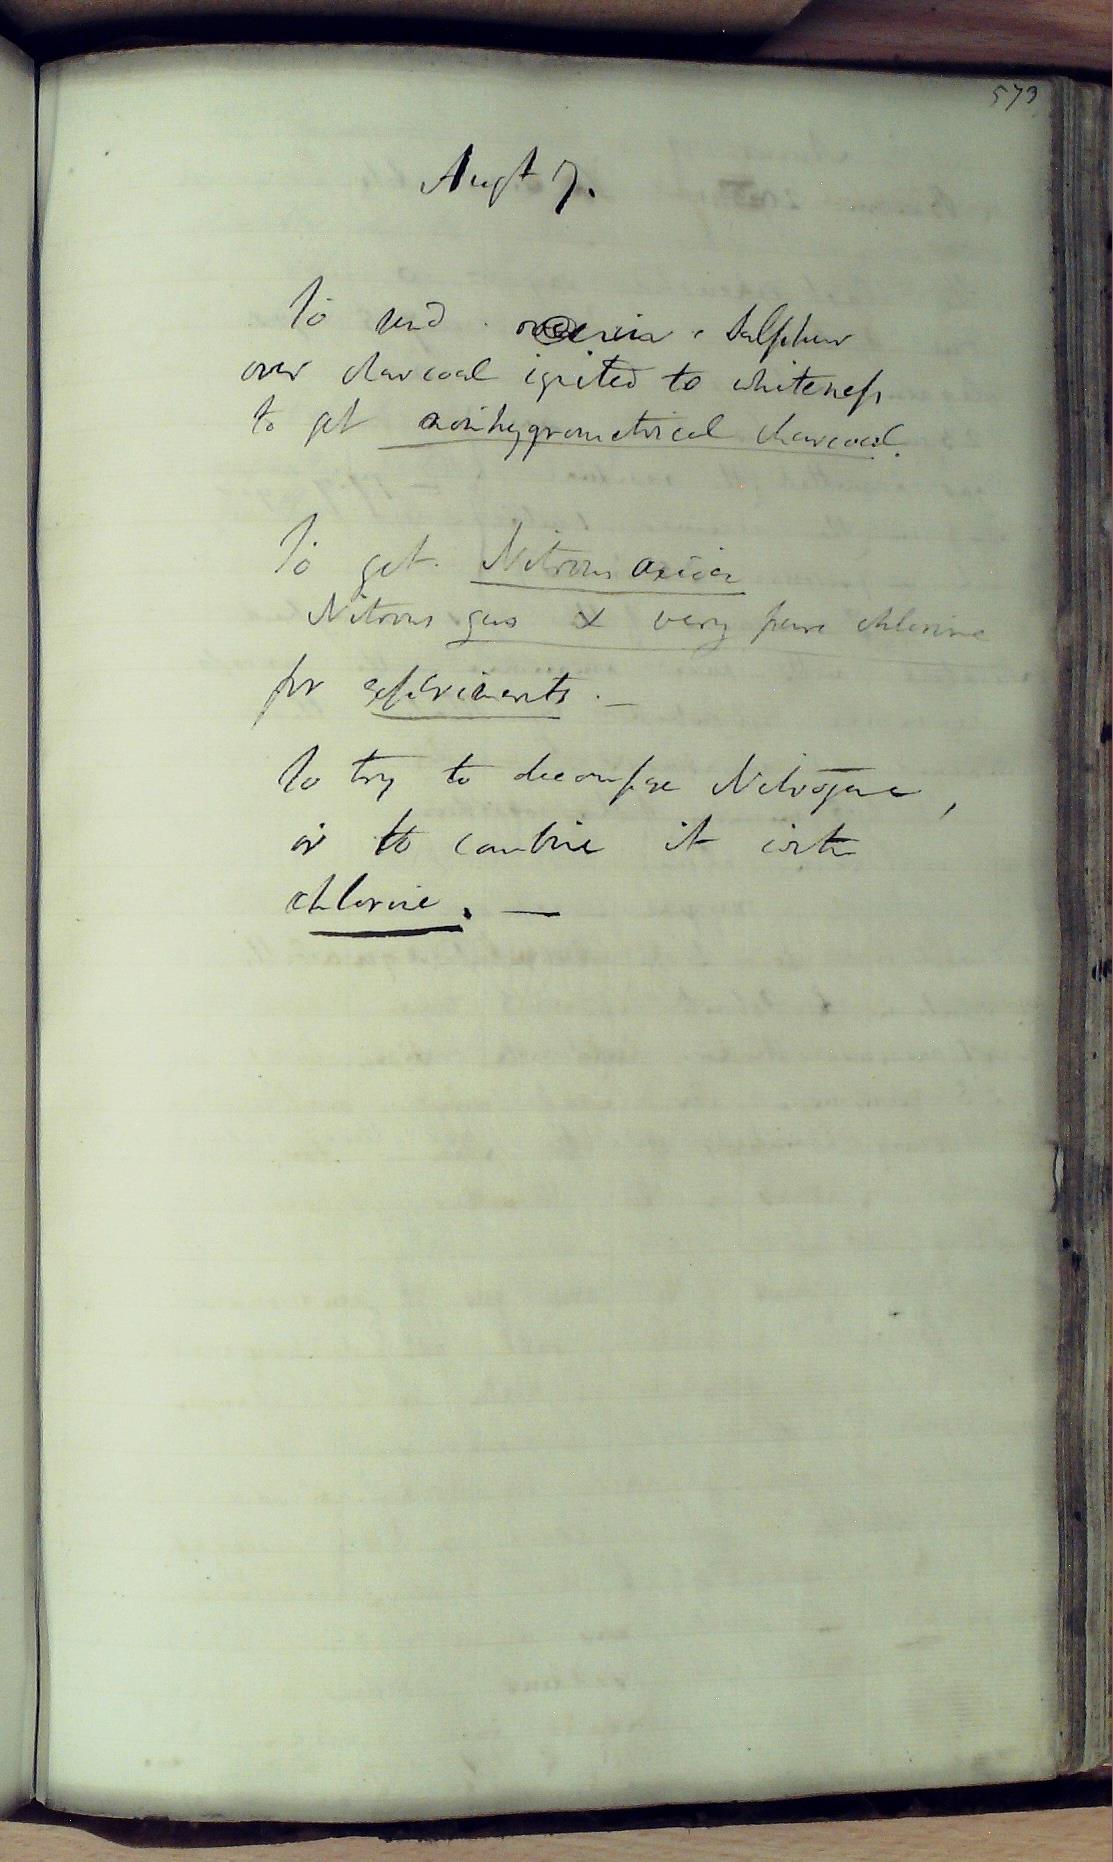 573
Augt 7.
To send over sulphur
over charcoal ignited to whiteness
to get nonhygrometrical charcoal.
To get Nitrous oxide
Nitrous gas & very pure chlorine
for experiments. —
To try to decompose Nitrogene,
or to combine it with
chlorine. —